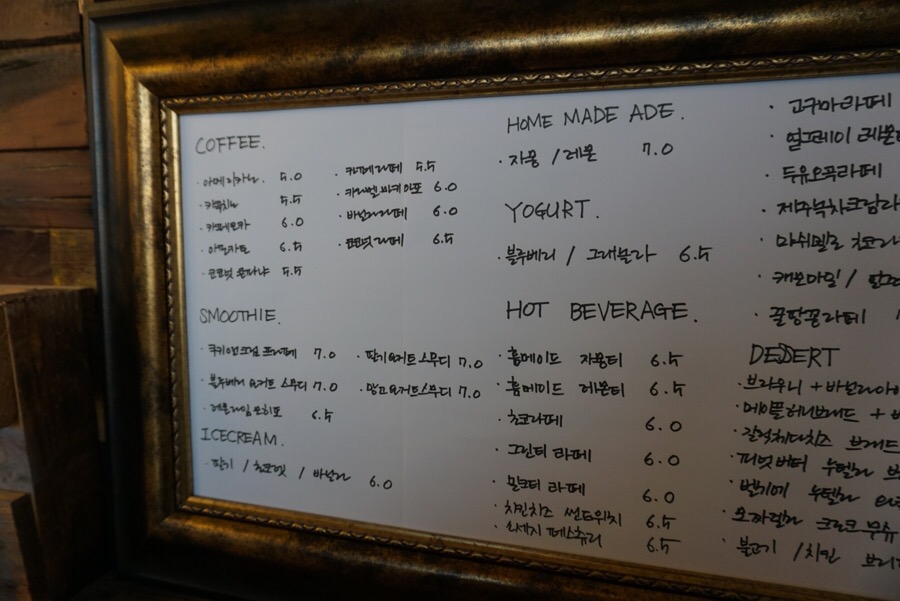 COFFEE.
· 아메리카노. 5.0
· 카푸치노 5.5
· 카페모카 6.0
· 아포가토 6.5
· 코코넛 5.5
· 카페라떼 5.5
· 카라멜 마키아또 6.0
· 바닐라라떼 6.0
· 코코넛라떼 6.5
SMOOTHIE.
· 쿠키앤크림 프라페 7.0
· 블루베리 요거트 스무디 7.0
· 레몬라임 모히또 6.5
· 딸기요거트스무디 7.0
· 망고요거트스무디 7.0
ICECREAM.
· 딸기 / 초코렛 / 바닐라 6.0
HOME MADE ADE.
· 자몽 / 레몬 7.0
YOGURT.
· 블루베리 / 그래놀라 6.5
HOT BEVERAGE.
· 홈메이드 자몽티 6.5
· 홈메이드 레몬티 6.5
· 초코라떼 6.0
· 그린티 라떼 6.0
· 밀크티 라떼 6.0
· 치킨치즈 샌드위치 6.5
· 소세지 페스츄리 6.5
· 고구마라떼
· 얼그레이 레몬
· 두유오곡라떼
· 제주녹차크림라
· 마쉬멜로 초코라
· 캐모마일 /
· 꿀땅콩라떼
DESSERT
· 브라우니 + 바닐라아이
· 메이플허니브레드 +
· 갈릭체다치즈 브레드
· 피넛버터 누텔라
· 벨기에 누텔라
· 모짜렐라 크로크 무슈
· 불고기 / 치킨 브리